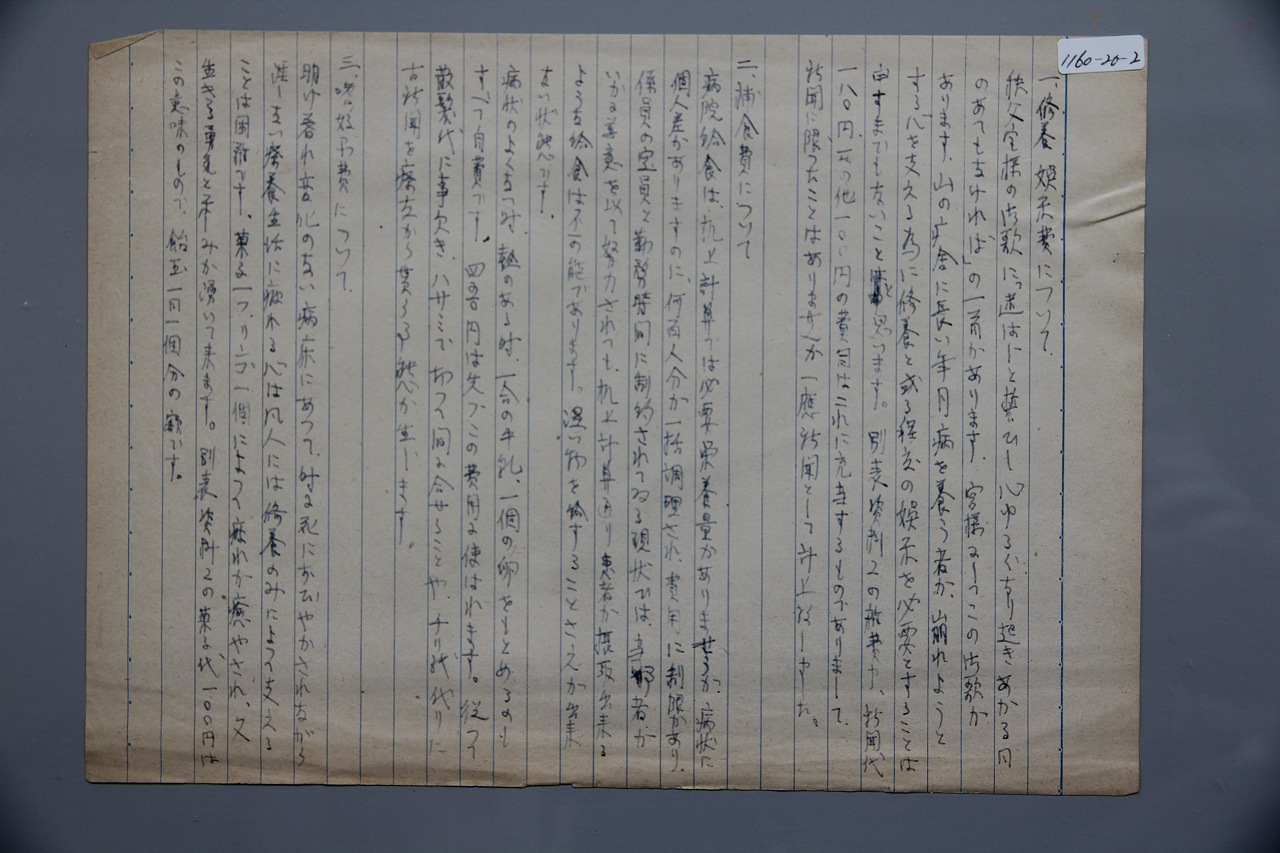 1160-20-2
一、修養娯楽費について、
秩父宮様の御歌に「進はんと焦らし心ゆるぐなり起きあがる日
のあてもなければ」の一首があります。宮様にしてこの御歌が
あります、山の療舎に長い年月病を養う者が、崩れようと
する心を支える為に修養と或る程度の娯楽を必要とすることは
申すまでもないことと思います。別表資料2の雑費中、新聞代
一八〇円、その他一〇〇円の費目はこれに充当するものでありまして、
新聞に限ったことはありませんが一應新聞として計上致しました。
二、補食費について
病院給食は、机上計算では必要栄養量がありませうが、病状に
個人差がありますのに、何百人分か一括調理され、費用に制限があり、
係員の定員と勤務時間に制約されてゐる現状では、者が
いかる善意を以て努力されても、机上計算通り患者が摂取出来る
ような給食は不可能であります。温い物を給することさえが出来
ない状態です。
病状のよくない時、熱のある時、一合の牛乳、一個の卵をもとめるのも
すべて自費です。四五〇円は先づこの費用に使はれます。従って
散髪代に事欠き、ハサミで切って間に合せることや、チリ紙代りに
古新聞を療友から貰らう状態が生じます。
三、嗜好品費について、
明け暮れ変化のない病床にあって、時に死におびやかされながら
淋しい療養生活に疲れる心は凡人には修養のみによって支える
ことは困難です、菓子一つ、リンゴ一個によって疲れが癒やされ、又
生きる勇気と楽しみが湧いて来ます。別表資料2の菓子代一〇〇円は
この意味のもので、飴玉一日一個分の額です。